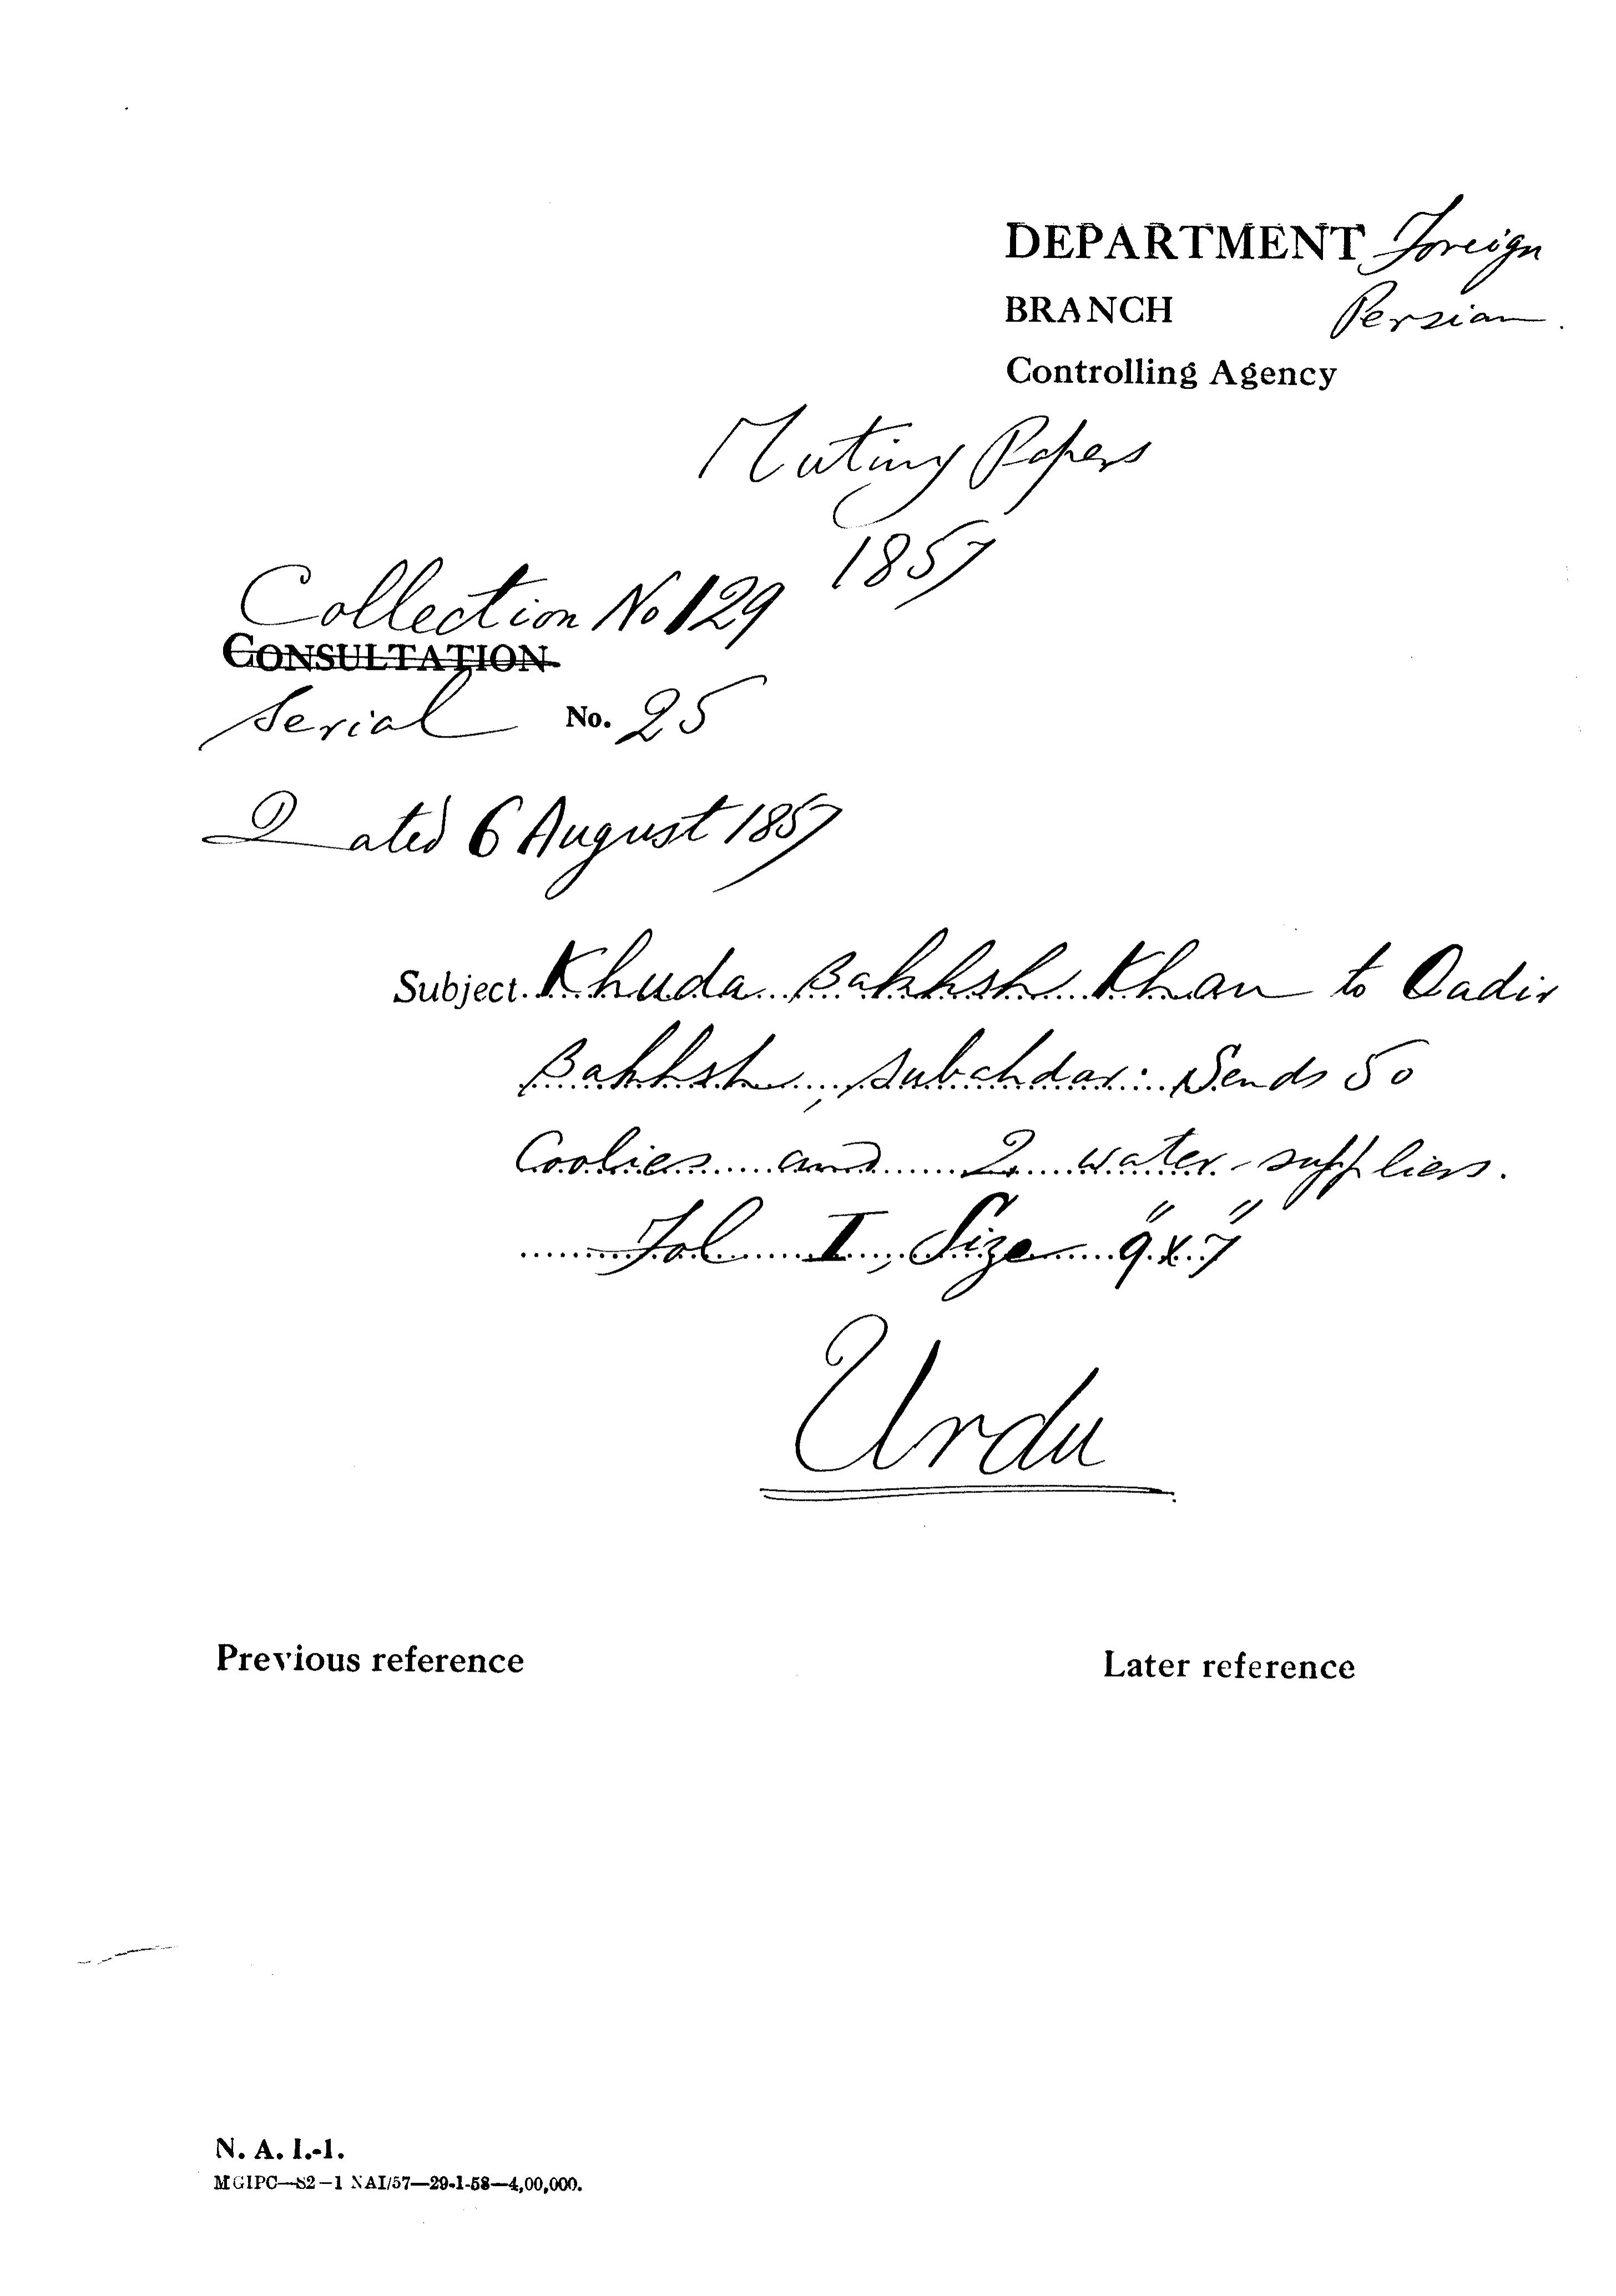 DEPARTMENT Foreign
BRANCH Persian.
Controlling Agency
Mutiny Papers
1857
Collection No 129
CONSULTATION
Serial No. 25
Dated 6 August 1857
Subject. Khuda Bakhsh Khan to Qadir
Bakhsh, Subehdar: Sends 50
Coolies and 2 water-suppliers.
Fol I, Size 9" x 7"
Urdu
Previous reference Later reference
N. A. I.-1.
MGIPC—S2—1 NAI/57—29-1-58—4,00,000.